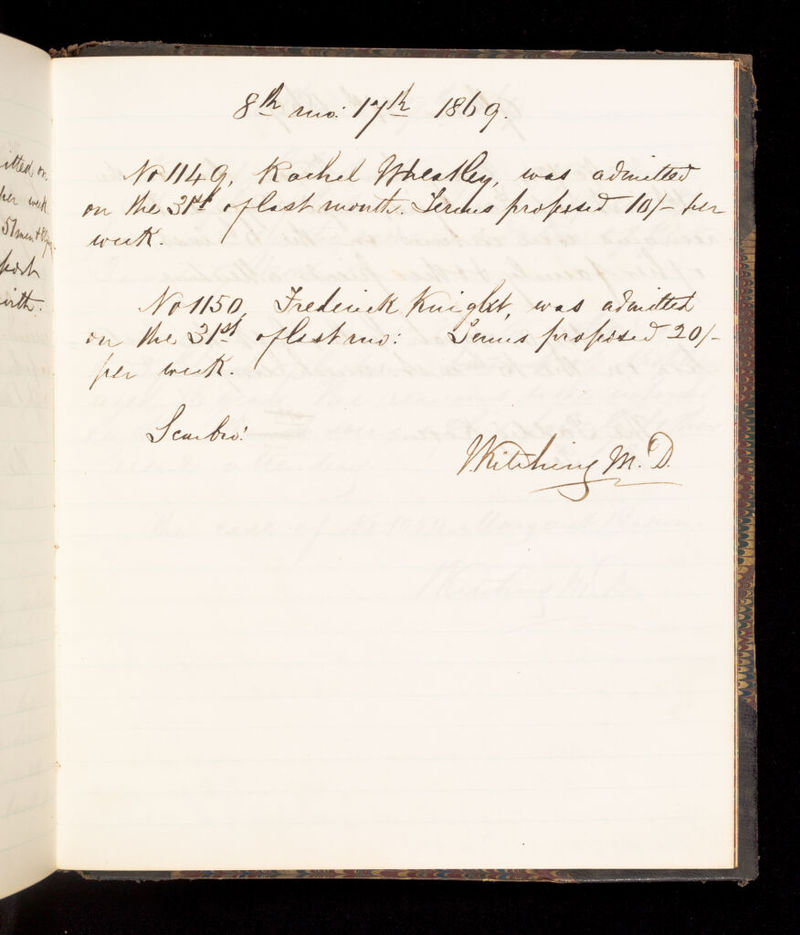 itted on
per week
post
with.
8th mo: 17th 1869.
No 1149, Rachel Wheatley, was admitted
on the 31st of last month. Terms proposed 10/- per
week.
No 1150, Frederick Knight, was admitted
on the 31st of last mo: Terms proposed 20/-
per week.
Scarbro'
JKitching M.D.